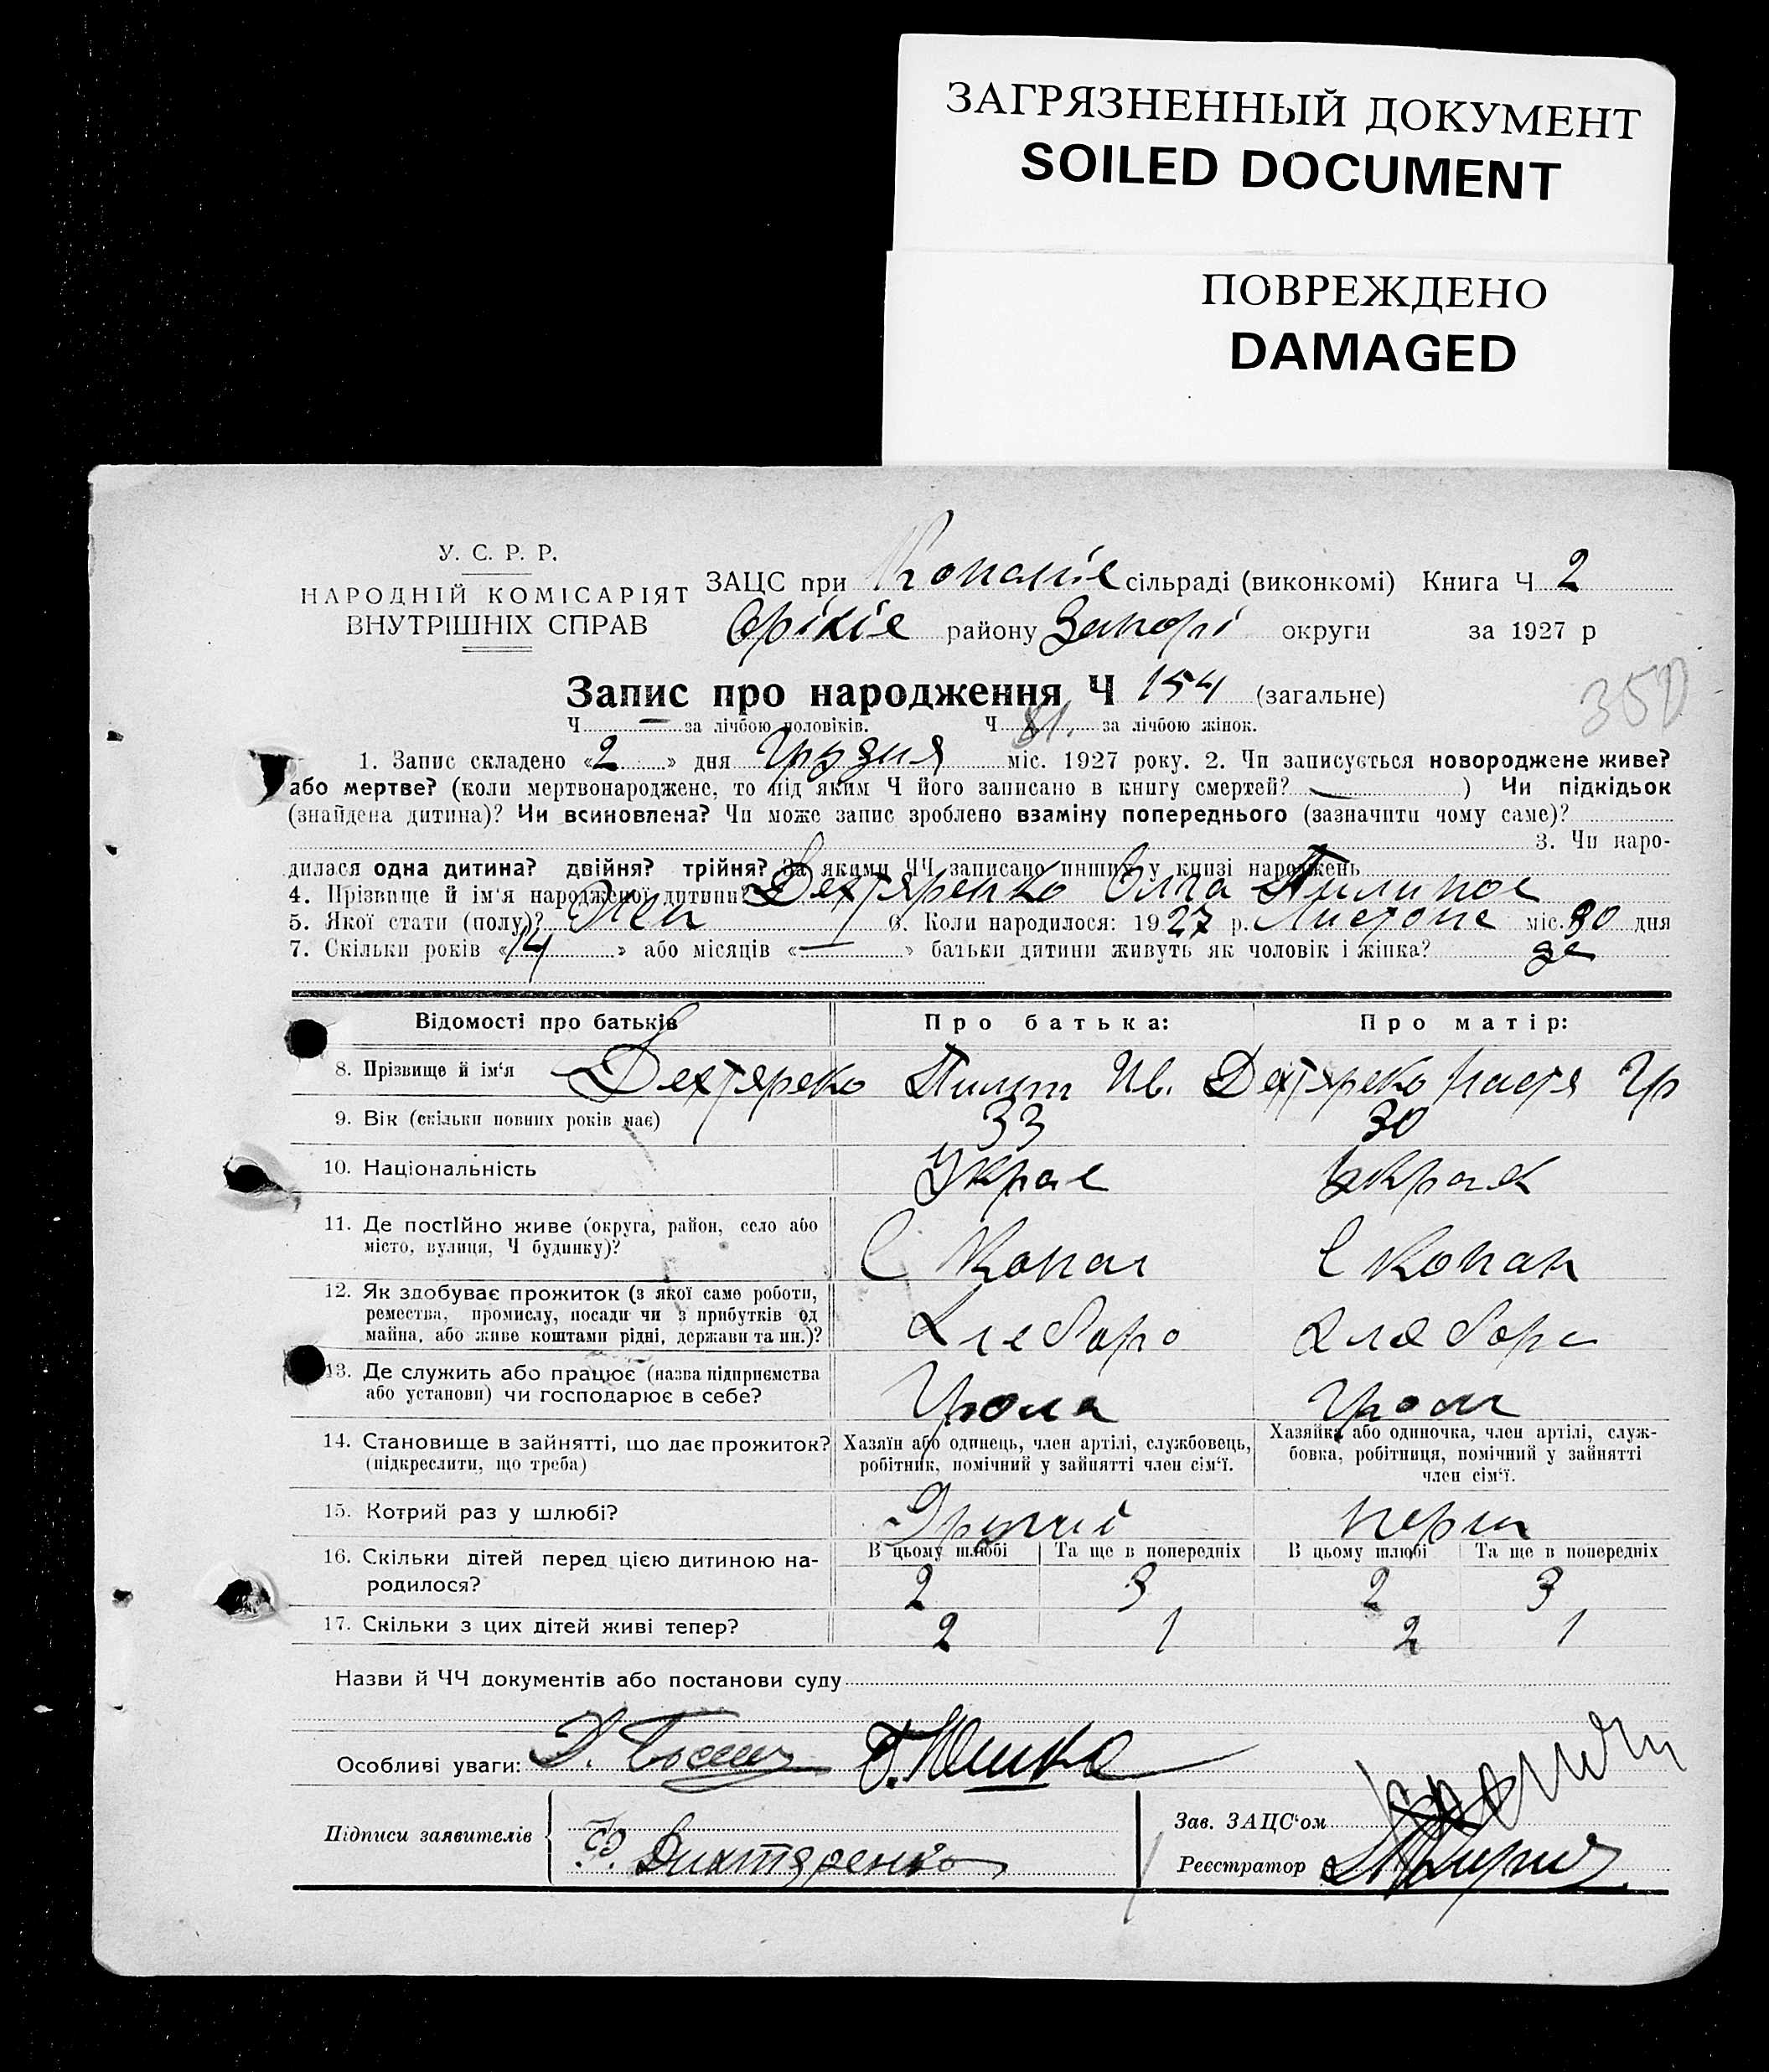 ЗАГРЯЗНЕННЫЙ ДОКУМЕНТ
SOILED DOCUMENT
ПОВРЕЖДЕНО
DAMAGED
У. С. Р. Р.
НАРОДНІЙ КОМІСАРІЯТ
ВНУТРІШНІХ СПРАВ
ЗАЦС при сільраді (виконкомі) Книга Ч 2
Оріхів району Запорі округи за 1927 р
Запис про народження Ч 154 (загальне)
350
Ч — за лічбою чоловіків. Ч 81 за лічбою жінок.
1. Запис складено «2» дня Грудня міс. 1927 року. 2. Чи записується новороджене живе?
або мертве? (коли мертвонароджене, то під яким Ч його записано в книгу смертей? —) Чи підкідьок
(знайдена дитина)? Чи всиновлена? Чи може запис зроблено взаміну попереднього (зазначити чому саме)?
3. Чи наро-
дилася одна дитина? двійня? трійня? За якими ЧЧ записано инших у книзі народжень
4. Прізвище й ім‘я народженої дитини? Дехтяренко Олга Пилипов
5. Якої стати (полу)? Жен 6. Коли народилося: 1927 р. Листопа міс. 30 дня
7. Скільки років «14» або місяців «—» батьки дитини живуть як чоловік і жінка?
Відомості про батьків
Про батька:
Про матір:
8. Прізвище й ім‘я Дехтяреко Пилип Ив. Дехтяреко Настя Гр
9. Вік (скільки повних років має) 33 30
10. Національність Украе Украе
11. Де постійно живе (округа, район, село або
місто, вулиця, Ч будинку)?
С Копан С Копан
12. Як здобуває прожиток (з якої саме роботи,
ремества, промислу, посади чи з прибутків од
майна, або живе коштами рідні, держави та ин.)?
Хлеборо Хлеборо
13. Де служить або працює (назва підприємства
або установи) чи господарює в себе?
14. Становище в зайнятті, що дає прожиток?
(підкреслити, що треба)
Хазяїн або одинець, член артілі, службовець,
робітник, помічний у зайнятті член сім‘ї.
Хазяйка або одиночка, член артілі, служ-
бовка, робітниця, помічний у зайнятті
член сім‘ї.
15. Котрий раз у шлюбі? Другий перш
16. Скільки дітей перед цією дитиною на-
родилося?
В цьому шлюбі Та ще в попередніх В цьому шлюбі Та ще в попередніх
2 3 2 3
17. Скільки з цих дітей живі тепер? 2 1 2 1
Назви й ЧЧ документів або постанови суду
Особливі уваги:
Підписи заявителів
Дихтяренко
Зав. ЗАЦС‘ом
Реєстратор